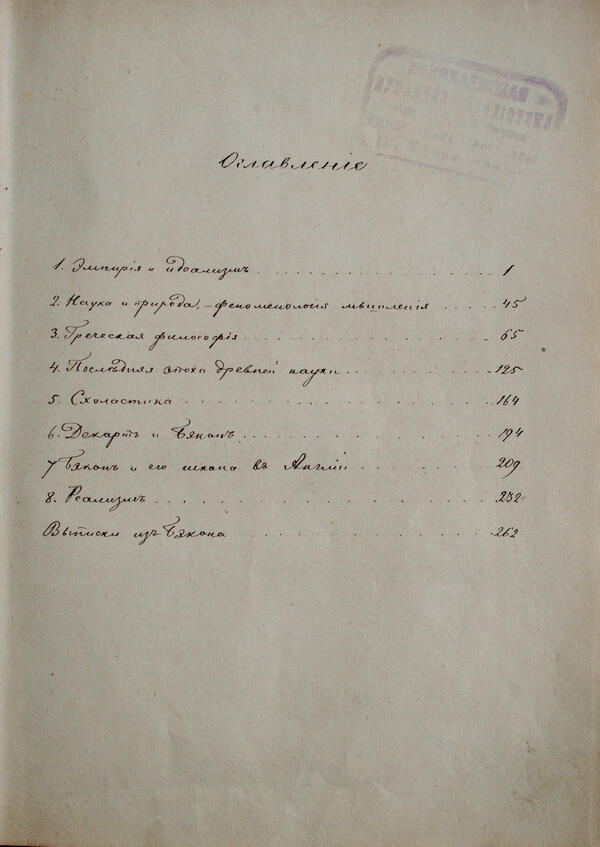 Оглавленіе
1. Эмпирія и идеализмъ . . . . . . . . . . . 1
2. Наука и природа, – феноменологія мышленія . . . . 45
3. Греческая философія . . . . . . . . . . . 65
4. Послѣдняя эпоха древней науки . . . . . . . . 125
5. Схоластика . . . . . . . . . . . . . . 164
6. Декартъ и Бэконъ . . . . . . . . . . . . 194
7 Бэконъ и его школа въ Англіи . . . . . . . . 209
8. Реализмъ . . . . . . . . . . . . . . . 232
Выписки изъ Бэкона . . . . . . . . . . . . 262